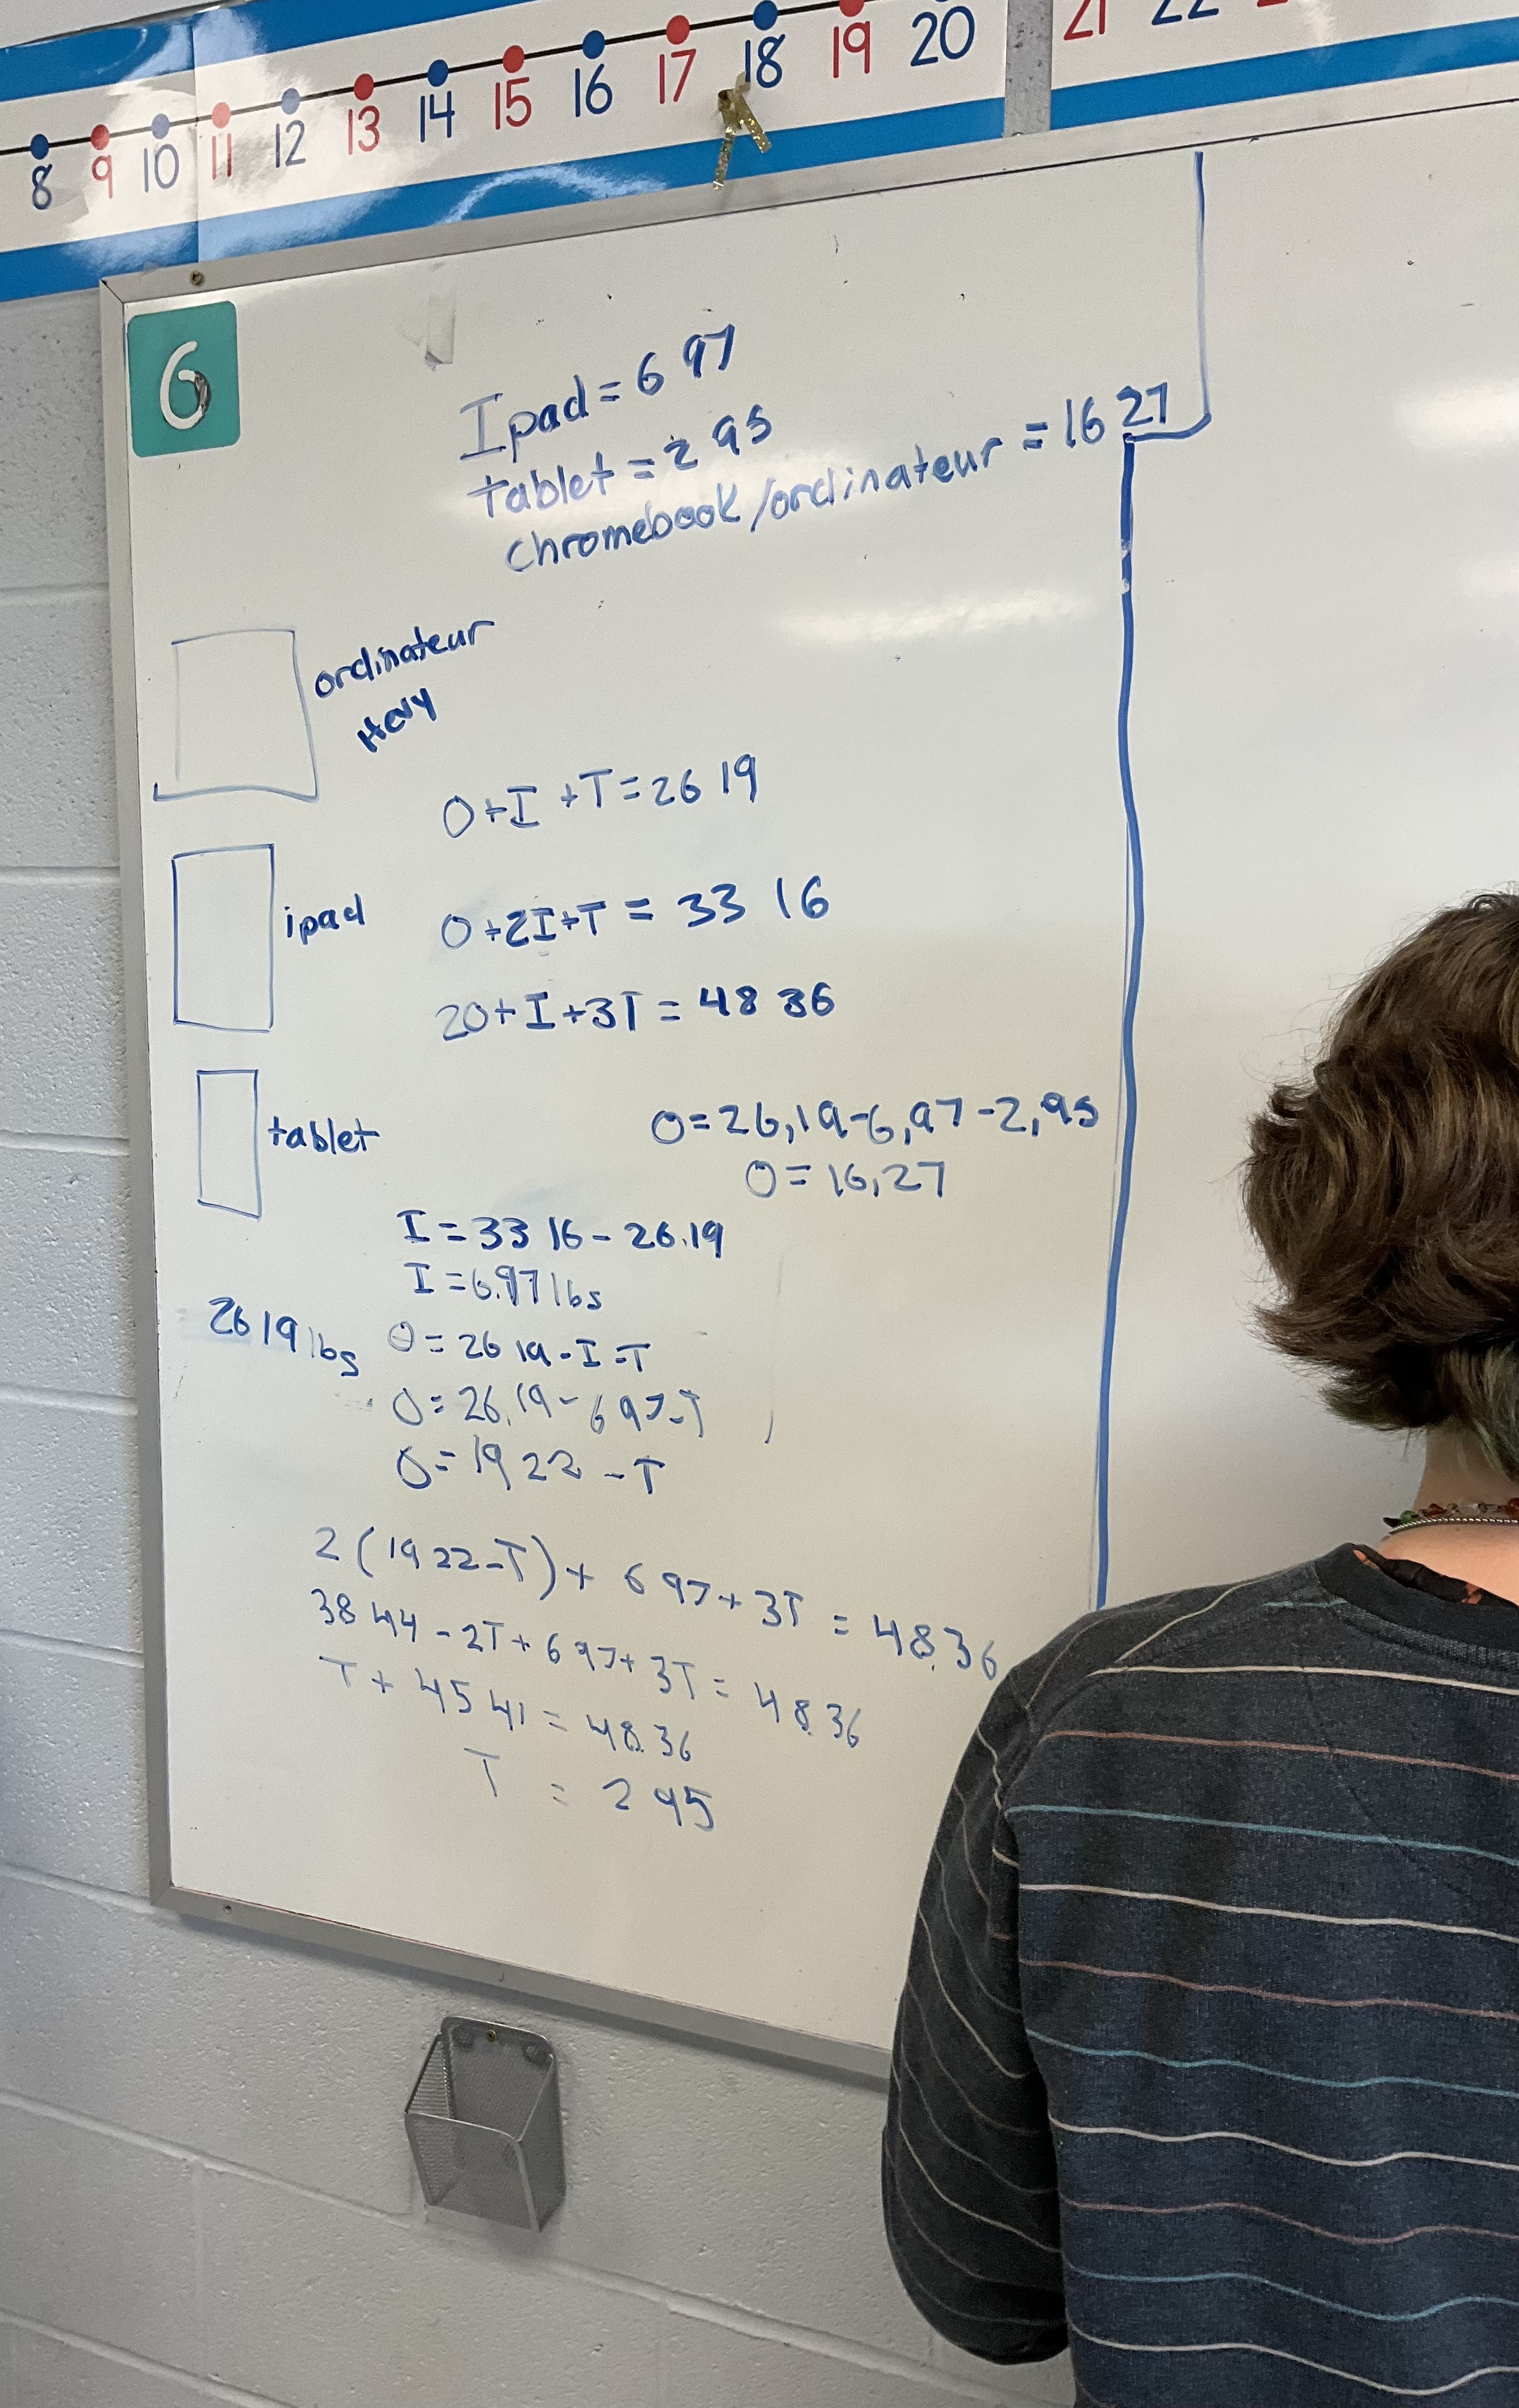 8 9 10 11 12 13 14 15 16 17 18 19 20 21 22
6
Ipad = 6 97
tablet = 2 95
chromebook/ordinateur = 16 27
ordinateur
Hevy
O+I+T=26 19
ipad
O+2I+T = 33 16
2O+I+3T = 48 36
tablet
O=26,19-6,97-2,95
O=16,27
I = 33 16 - 26.19
I = 6.97 lbs
26 19 lbs
O = 26 19 - I - T
O = 26.19 - 6 97 - T
O = 19 22 - T
2(19 22-T) + 6 97 + 3T = 48.36
38 44 - 2T + 6 97 + 3T = 48.36
T + 45 41 = 48.36
T = 2 95